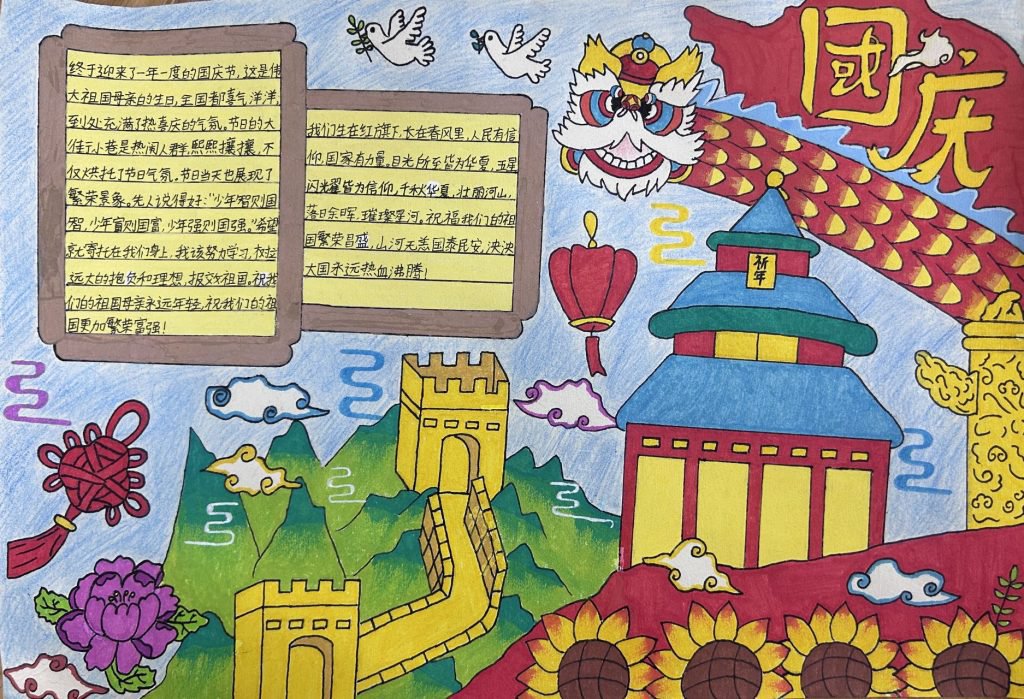 國庆
终于迎来了一年一度的国庆节,这是伟
大祖国母亲的生日,全国都喜气洋洋,
到处充满了热喜庆的气氛。节日的大
街小巷是热闹人群,熙熙攘攘,不
仅烘托了节日气氛。节日当天也展现了
繁荣景象。先人说得好:“少年智则国
智,少年富则国富,少年强则国强。”希望
就寄托在我们身上,我该努力学习,树立
远大的抱负和理想,报效祖国。祝我
们的祖国母亲永远年轻,祝我们的祖
国更加繁荣富强!
我们生在红旗下,长在春风里,人民有信
仰,国家有力量,目光所至皆为华夏,五星
闪光耀皆为信仰,千秋华夏,壮丽河山,
落日余晖,璀璨星河。祝福我们的祖
国繁荣昌盛,山河无恙国泰民安,泱泱
大国永远热血沸腾!
祈年